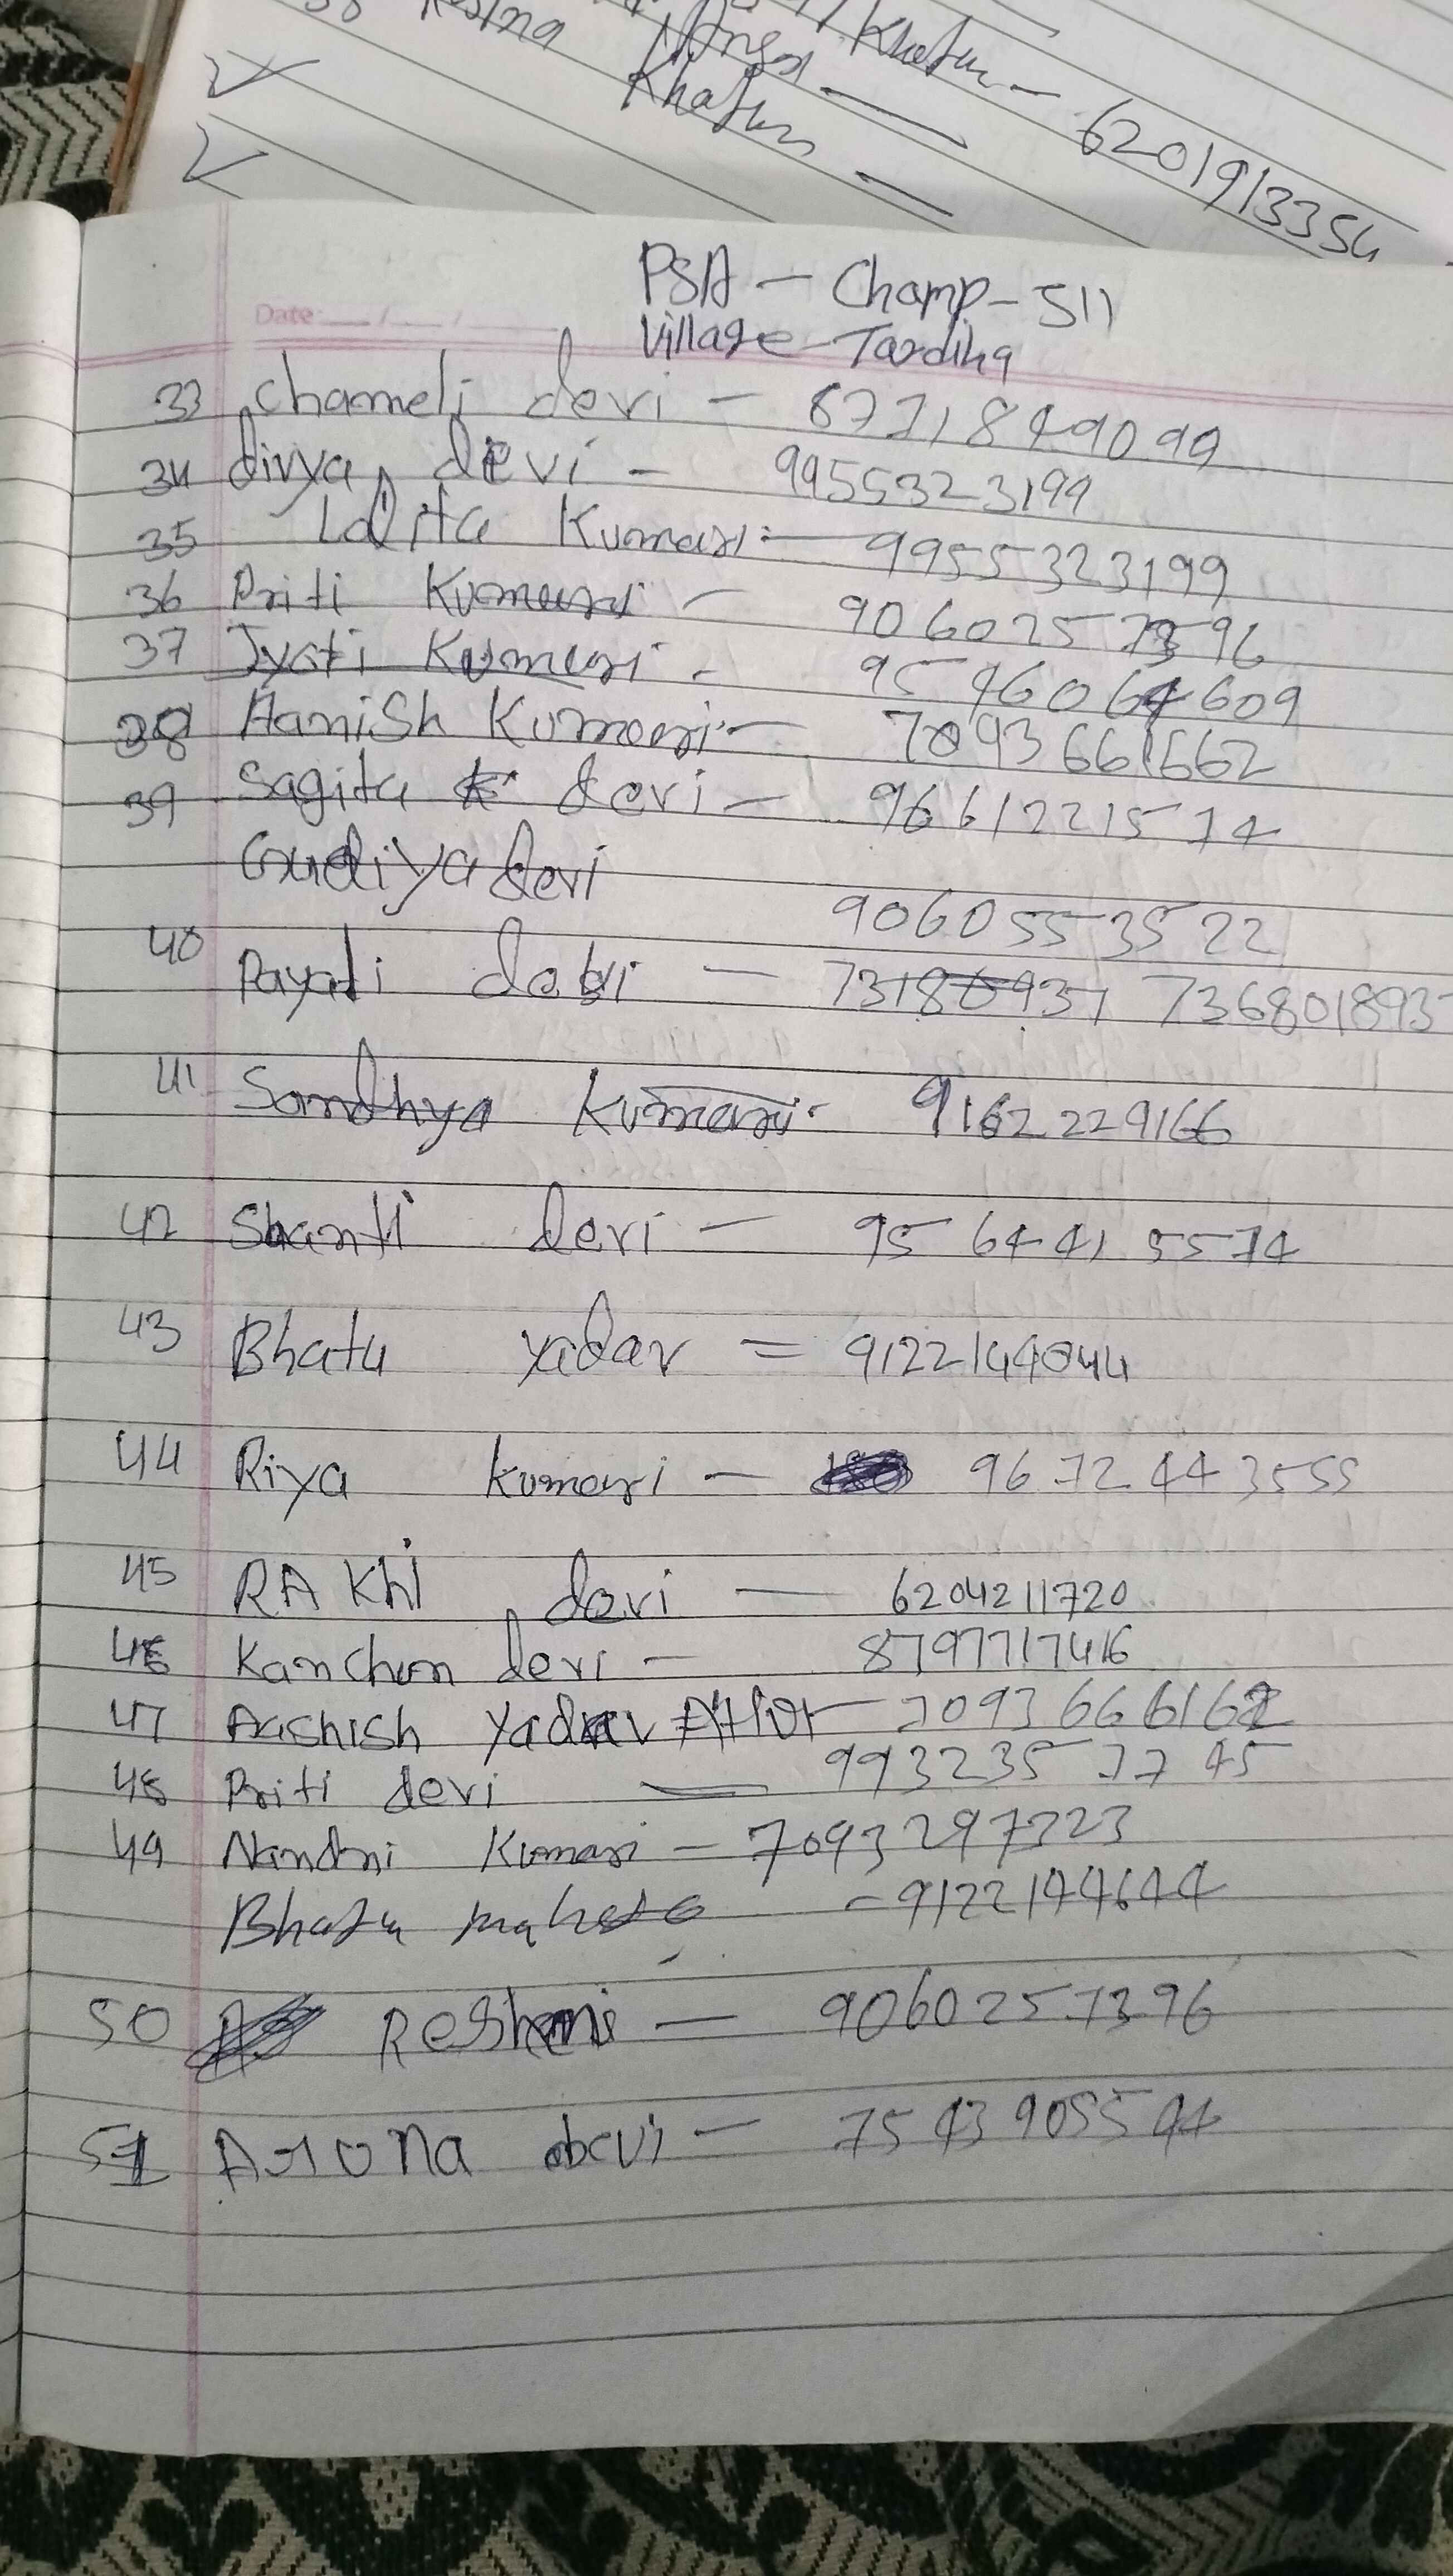 Khatun - 6201913354
Khatun
PSA - Champ - 511
Village - Tardiha
33 Chameli devi - 8771849099
34 divya devi - 9955323199
35 Lalita Kumari :- 9955323199
36 Priti Kumari - 9060257396
37 Jyoti Kumari - 9546064609
38 Aanish Kumari - 7093661662
39 Sagita devi - 9661221574
Gudiya devi
9060553522
40 Payali devi - 73180937 736801893
41 Sandhya Kumari - 9162229166
42 Shanti devi - 9564415574
43 Bhatu yadav = 9122144044
44 Riya Kumari - 9672443555
45 RAKhi devi - 6204211720
46 Kanchan devi - 8797717416
47 Aashish Yadav - 7093666162
48 Priti devi - 9932357745
49 Nandni Kumari - 7093297323
Bhatu mahato - 9122144644
50 Reshmi - 9060257396
51 Aruna devi - 7543905544